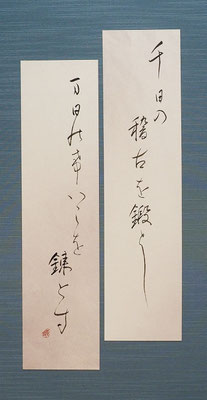 千日の
稽古を鍛とし
万日のけいこを
錬とす